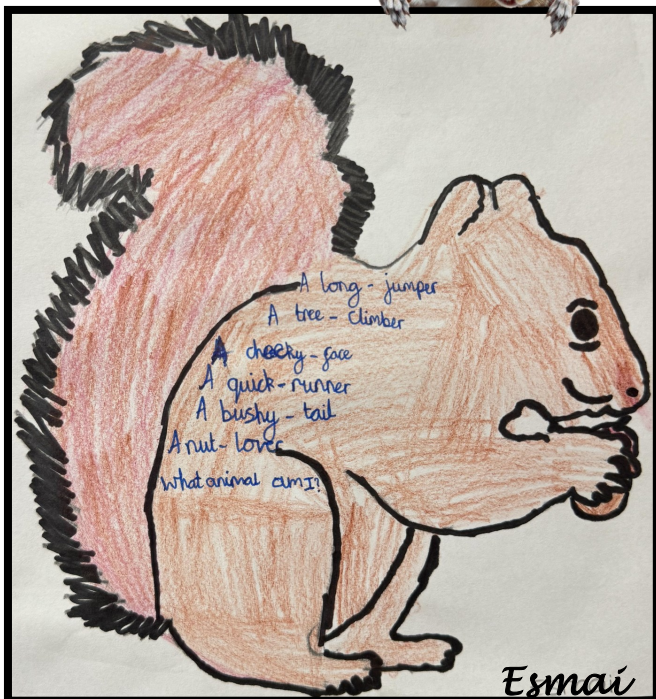 A long - jumper
A tree - climber
A cheeky - face
A quick - runner
A bushy - tail
A nut - lover
What animal am I?
Esmai